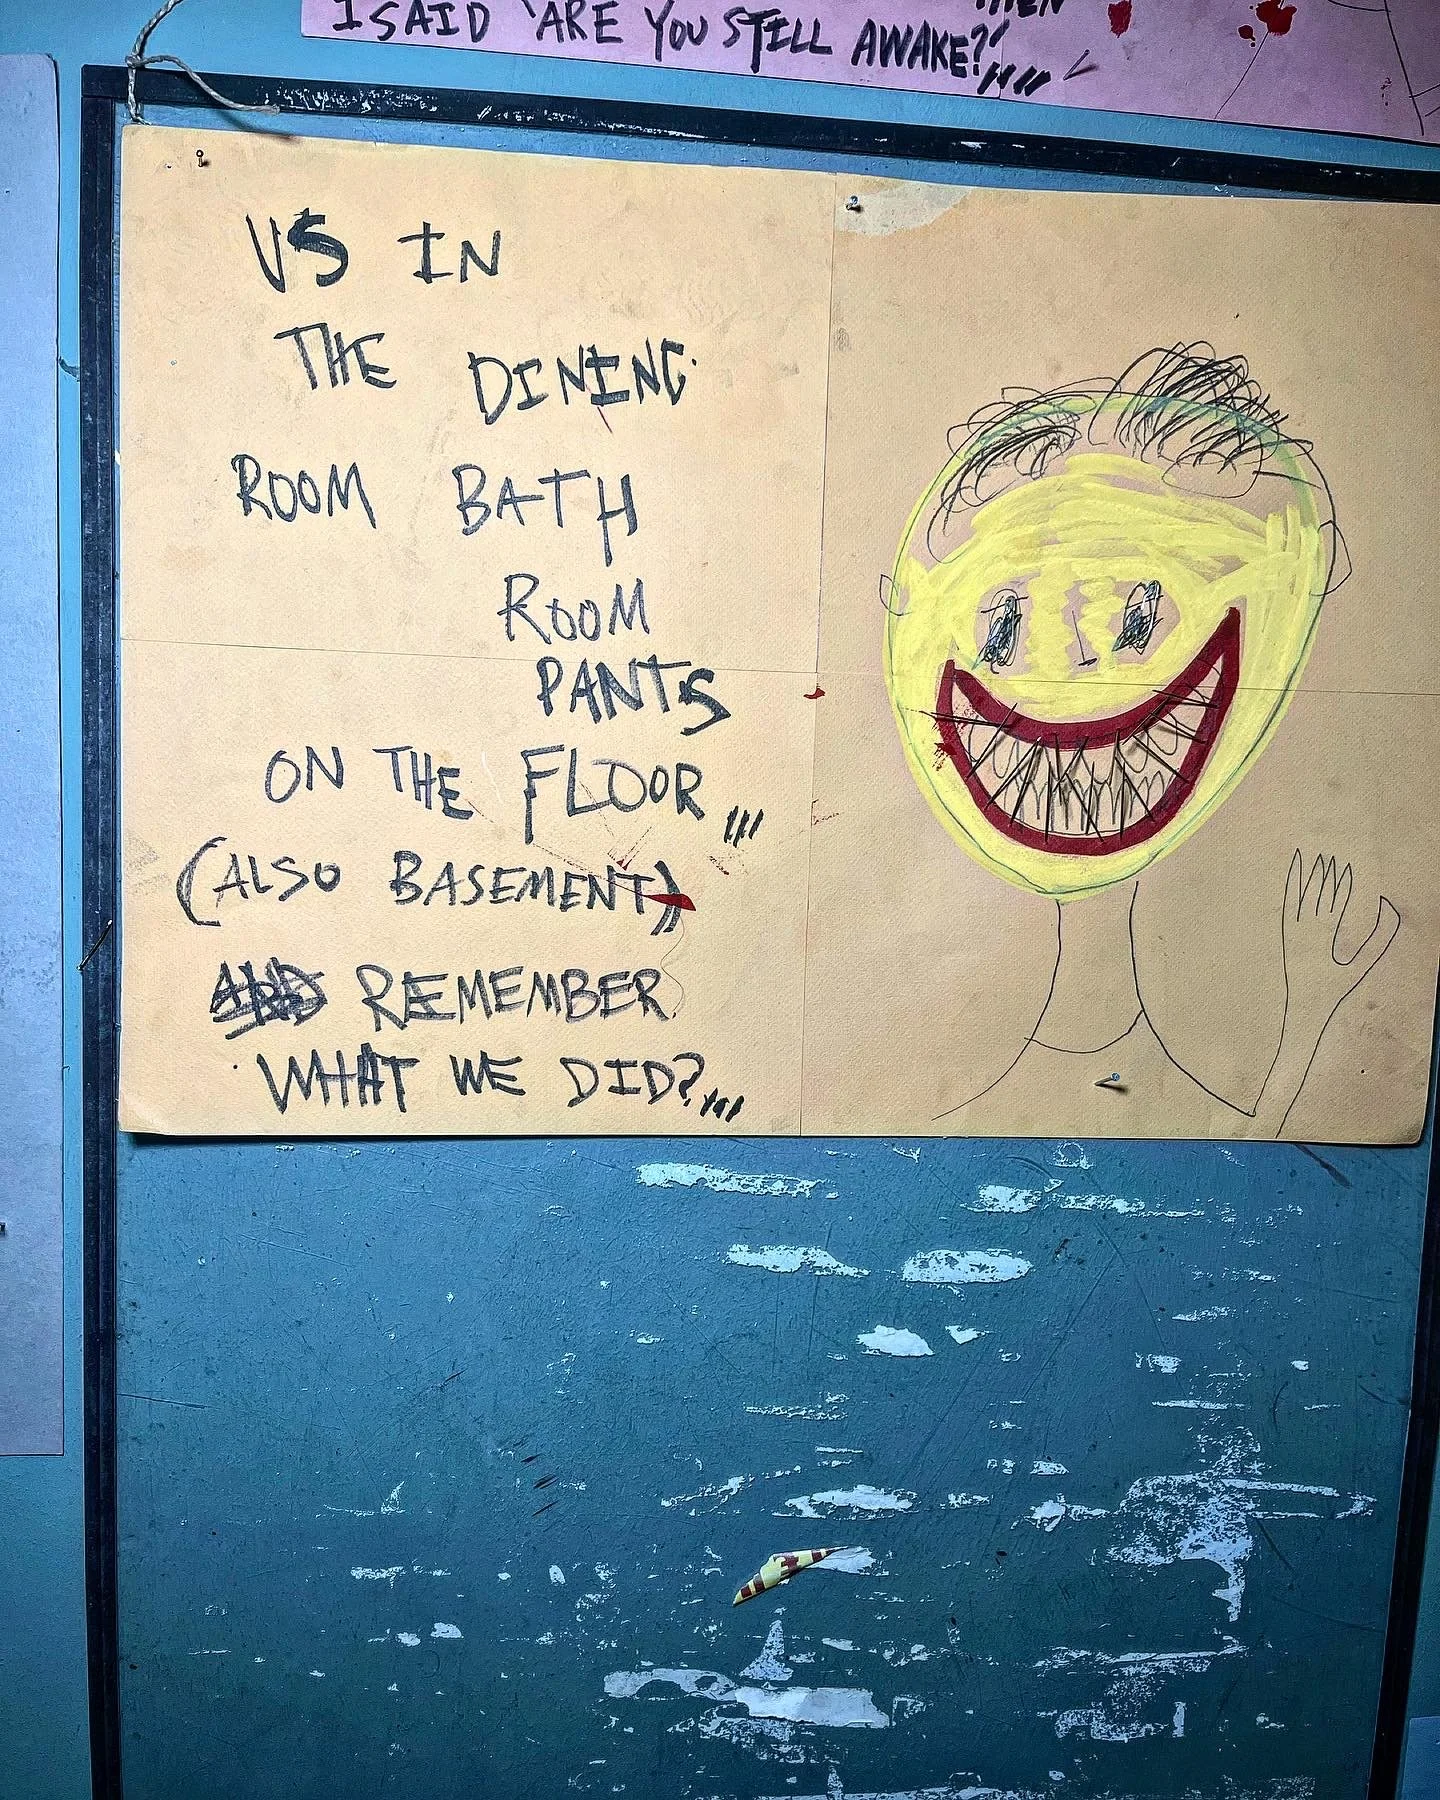 THEN
I SAID 'ARE YOU STILL AWAKE?'
US IN
THE DINING
ROOM BATH
ROOM
PANTS
ON THE FLOOR
(ALSO BASEMENT)
REMEMBER
WHAT WE DID?